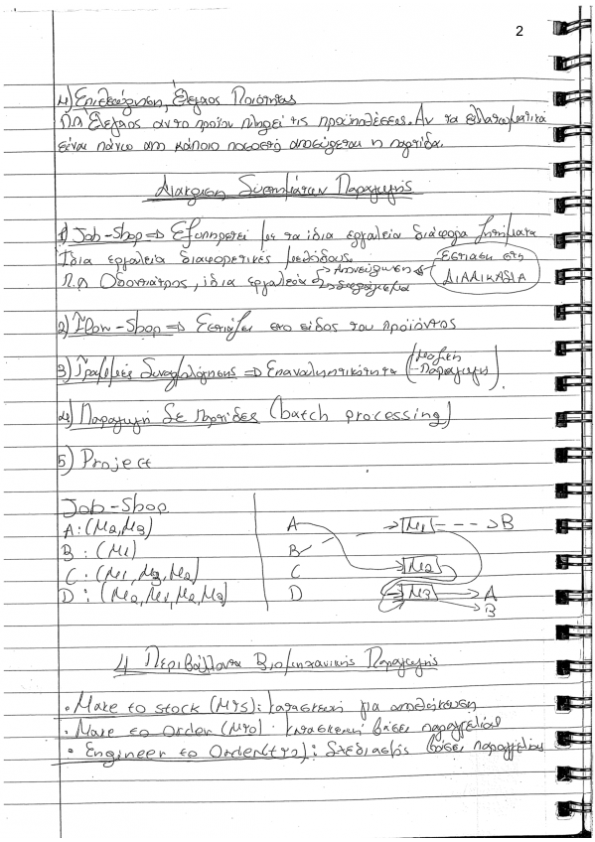 2
4) Επιθεώρηση, Έλεγχος Ποιότητας
Π.χ Έλεγχος αν το προϊόν πληρεί τις προϋποθέσεις. Αν τα ελλατωματικά
είναι πάνω από κάποιο ποσοστό απορρίπτεται η παρτίδα.
Διάκριση Συστημάτων Παραγωγής
1) Job-Shop ⇒ Εξυπηρετεί με τα ίδια εργαλεία διάφορα ζητήματα
Ίδια εργαλεία διαφορετικές μεθόδους.
Π.χ Οδοντίατρος, ίδια εργαλεία
Εστίαση στη
ΔΙΑΔΙΚΑΣΙΑ
2) Flow-Shop ⇒ Εστιάζει στο είδος του προϊόντος
3) Γραμμές Συναρμολόγησης ⇒ Επαναληπτικότητα (Μαζική
Παραγωγή)
4) Παραγωγή Σε Παρτίδες (batch processing)
5) Project
Job-Shop
A: (M2, M3)
B: (M1)
C: (M1, M3, M2)
D: (M2, M1, M2, M3)
A → M1 ---> B
B
C M2
D → M3 → A
B
4 Περιβάλλοντα Βιομηχανικής Παραγωγής
• Make to stock (MTS): κατασκευή για αποθήκευση
• Make to Order (MTO): κατασκευή βάσει παραγγελίας
• Engineer to Order (ETO): Σχεδιασμός βάσει παραγγελίας